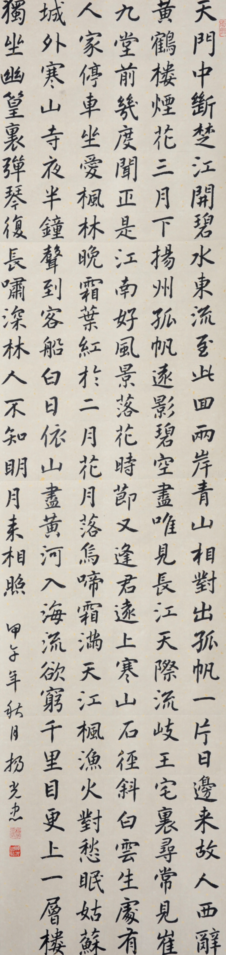 天門中斷楚江開碧水東流至此回兩岸青山相對出孤帆一片日邊来故人西辭
黃鶴樓煙花三月下揚州孤帆遠影碧空盡唯見長江天際流岐王宅裏尋常見崔
九堂前幾度聞正是江南好風景落花時節又逢君遠上寒山石徑斜白雲生處有
人家停車坐愛楓林晚霜葉紅於二月花月落烏啼霜滿天江楓漁火對愁眠姑蘇
城外寒山寺夜半鐘聲到客船白日依山盡黃河入海流欲窮千里目更上一層樓
獨坐幽篁裏彈琴復長嘯深林人不知明月来相照
甲午年秋月